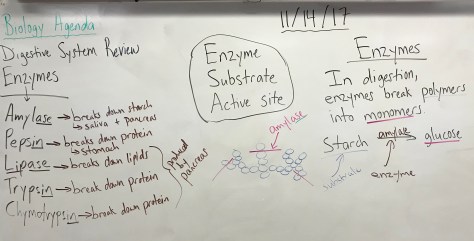 Biology Agenda
Digestive System Review
Enzymes
Amylase → breaks down starch
↳ saliva + pancreas
Pepsin → breaks down protein
↳ stomach
Lipase → breaks down lipids
Trypsin → break down protein
Chymotrypsin → break down protein
produced by pancreas
11/14/17
Enzyme
Substrate
Active site
amylase
Enzymes
In digestion,
enzymes break polymers
into monomers.
Starch amylase → glucose
substrate
enzyme